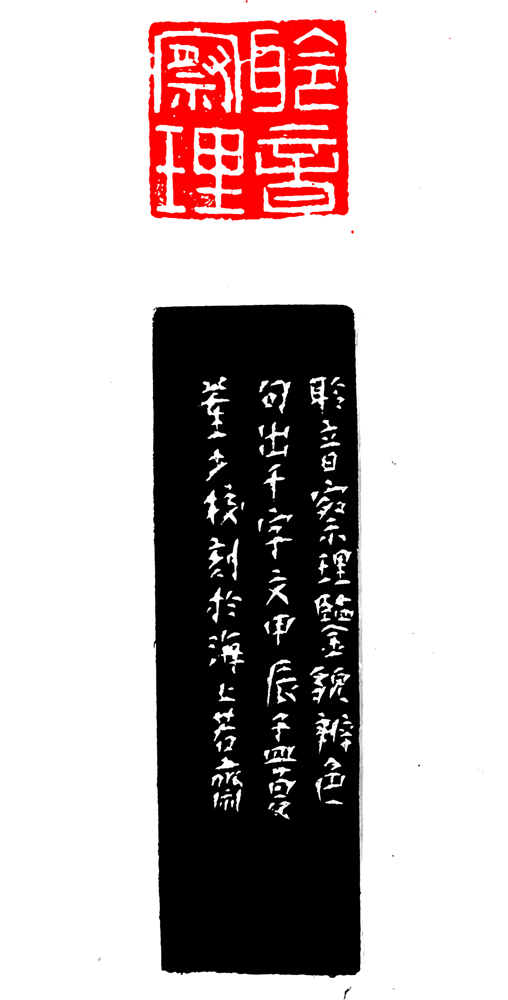 聆音
察理
聆音察理鑒貌辨色
句出千字文甲辰孟夏
董少校刻於海上若齋